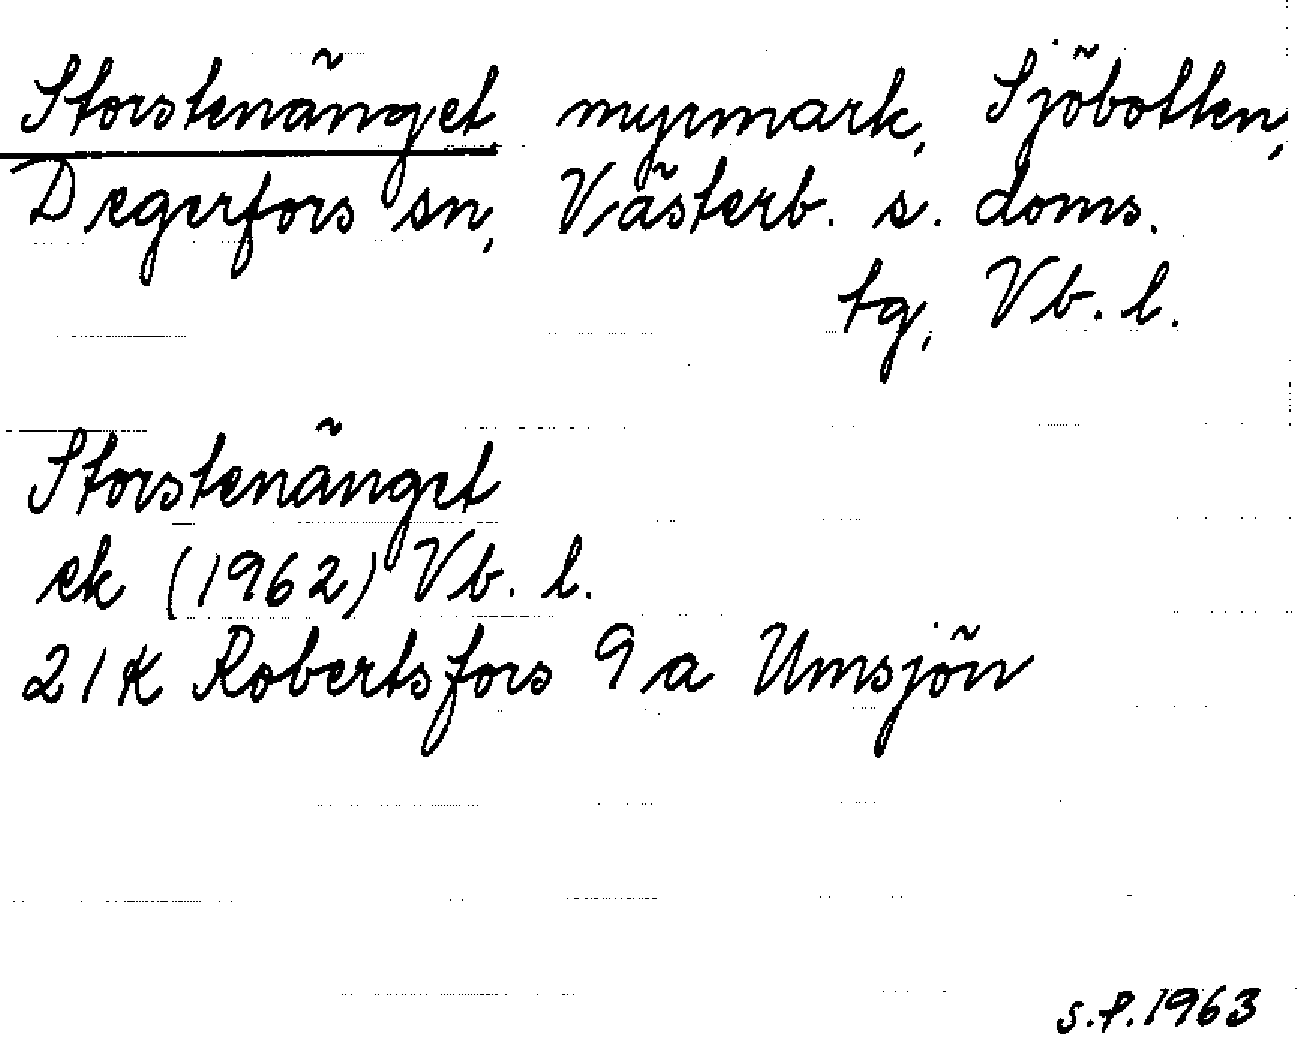 Storstenänget myrmark, Sjöbotten,
Degerfors sn, Västerb. s. doms.
tg, Vb. l.
Storstenänget
ek (1962) Vb. l.
21K Robertsfors 9a Umsjön
S.P. 1963